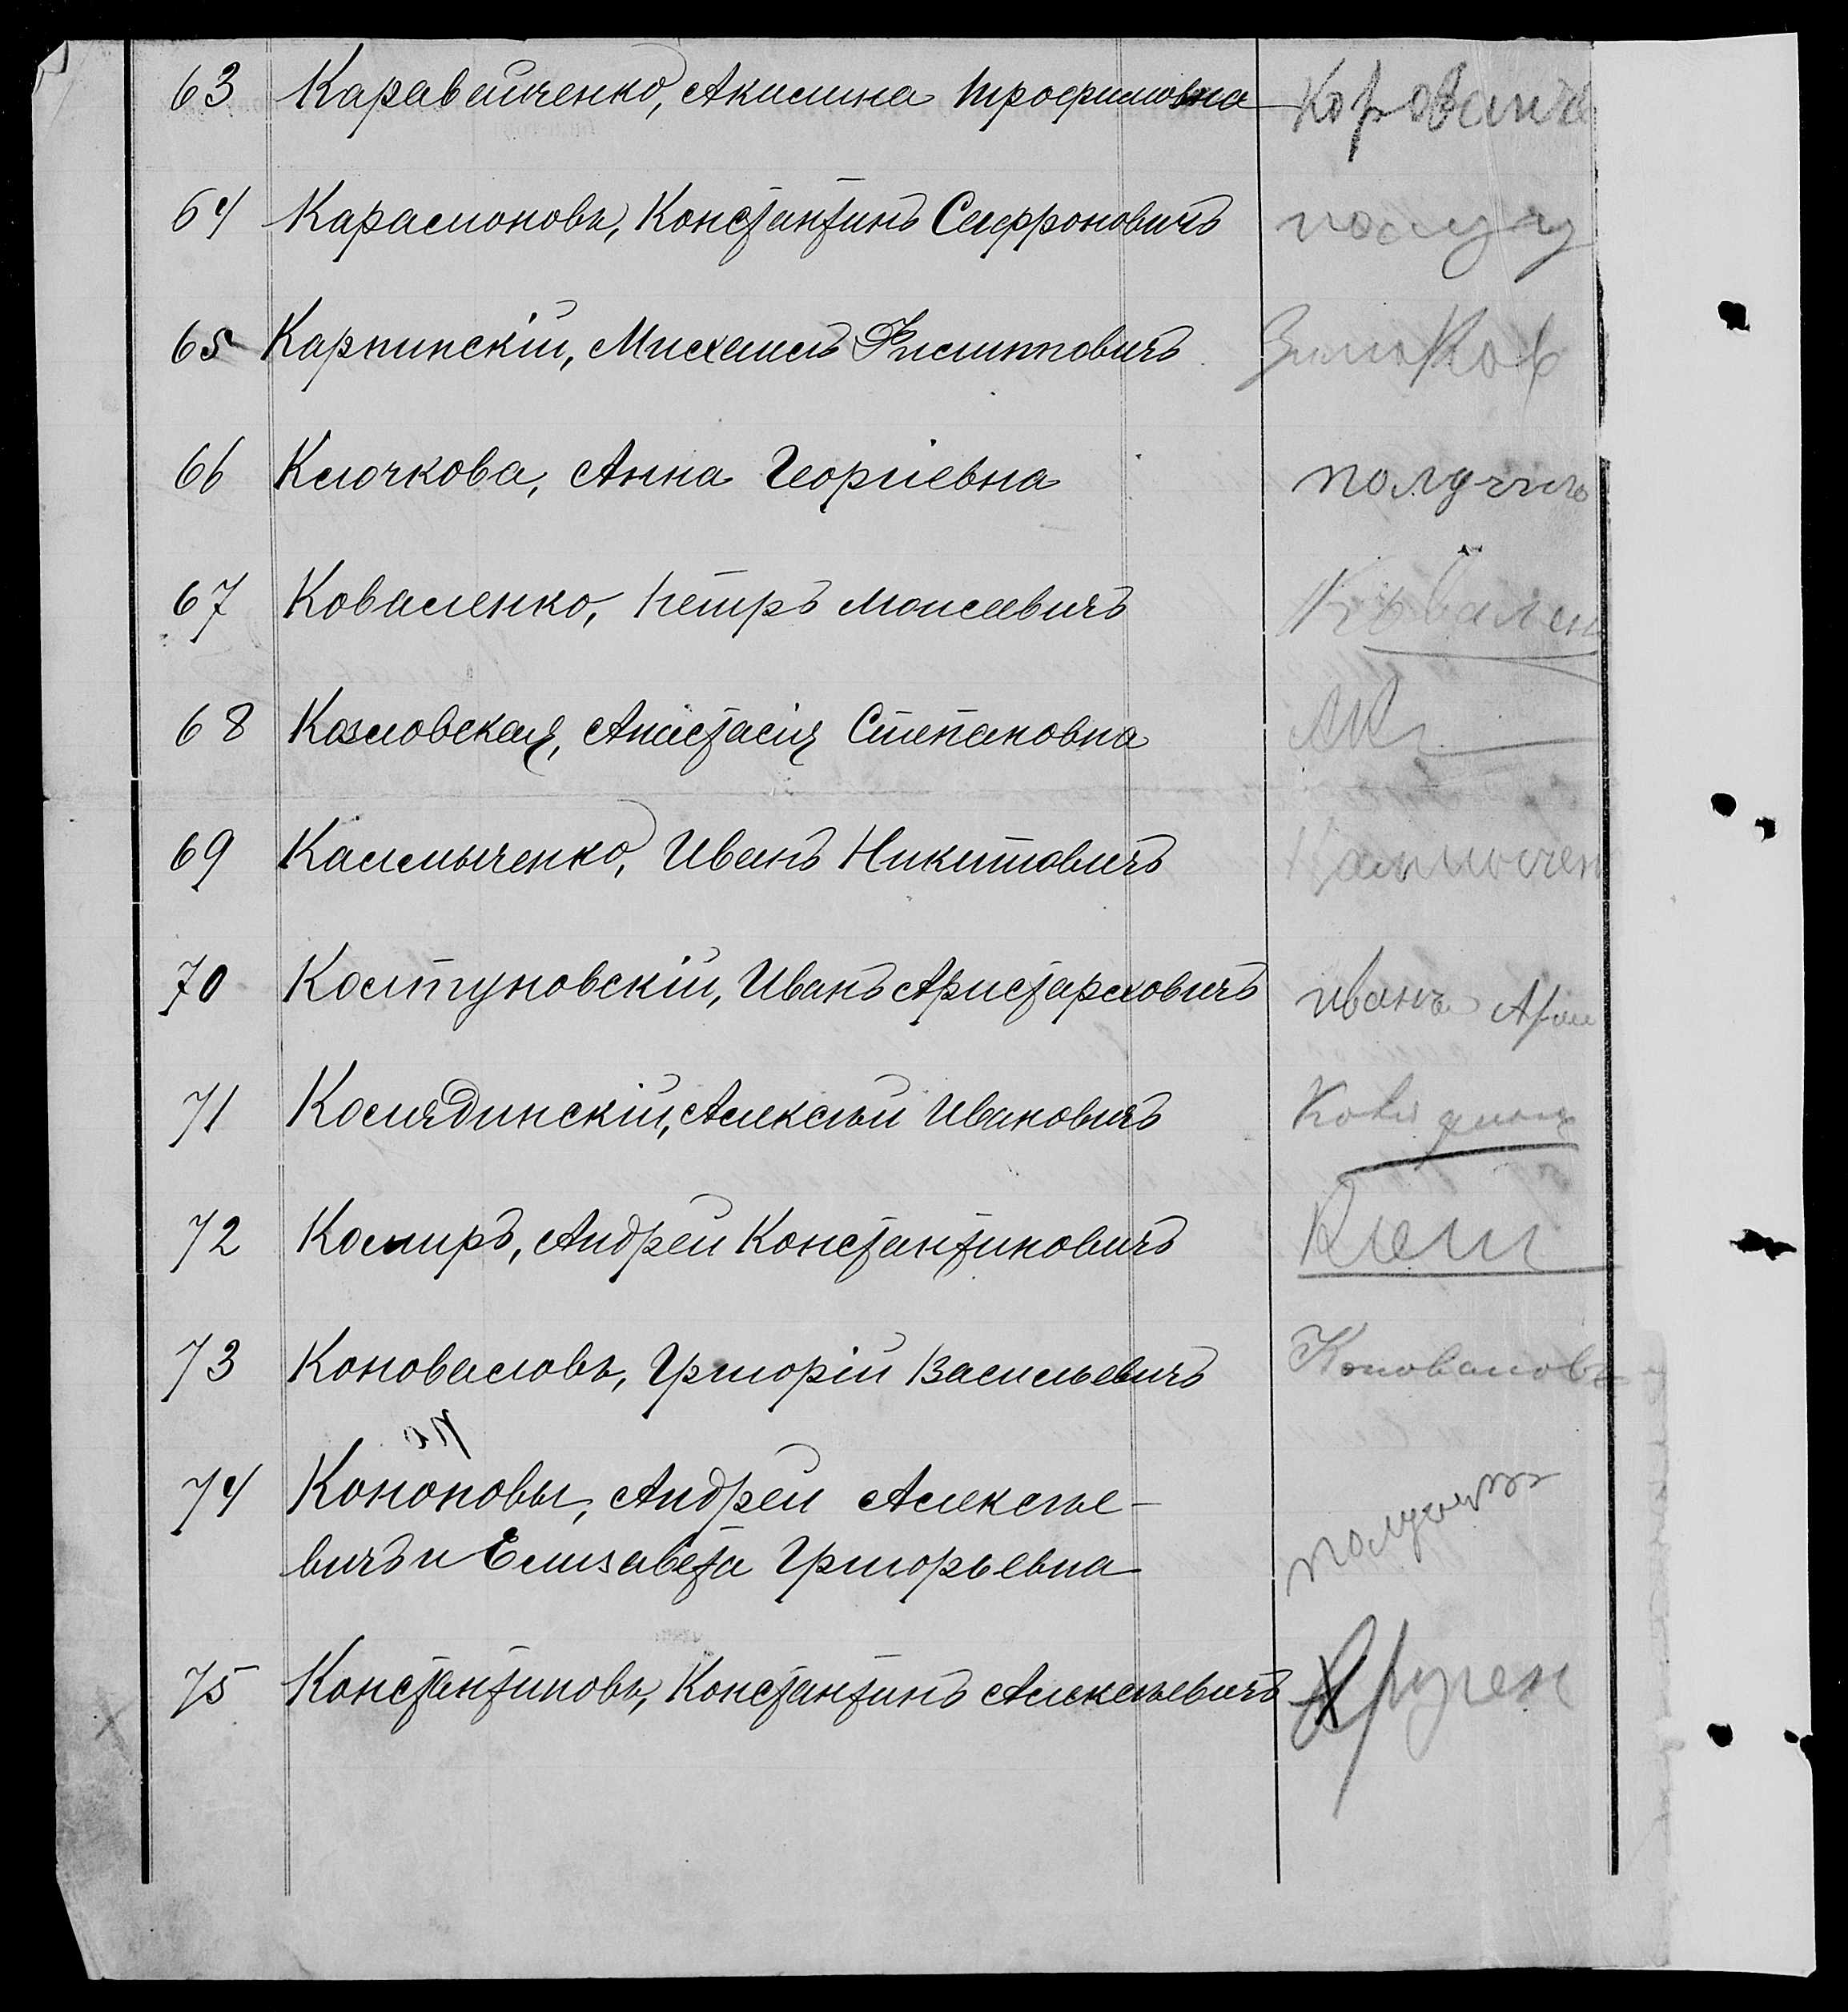 63 Каравайченко, Акилина Трофимовна
64 Карамоновъ, Константинъ Сафроновичъ получ
65 Карпинскій, Михаилъ Филипповичъ
66 Клочкова, Анна Георгіевна получилъ
67 Коваленко, Петръ Моисеевичъ Ковален
68 Козловская, Анастасія Степановна
69 Калмыченко, Иванъ Никитовичъ
70 Колтуновскій, Иванъ Аристарховичъ Иванъ
71 Колядинскій, Алексѣй Ивановичъ
72 Андрей Константиновичъ
73 Коноваловъ, Григорій Васильевичъ Коноваловъ
74 Кононовы, Андрей Алексѣе-
вичъ и Елизавета Григорьевна
75 Константиновъ, Константинъ Алексѣевичъ